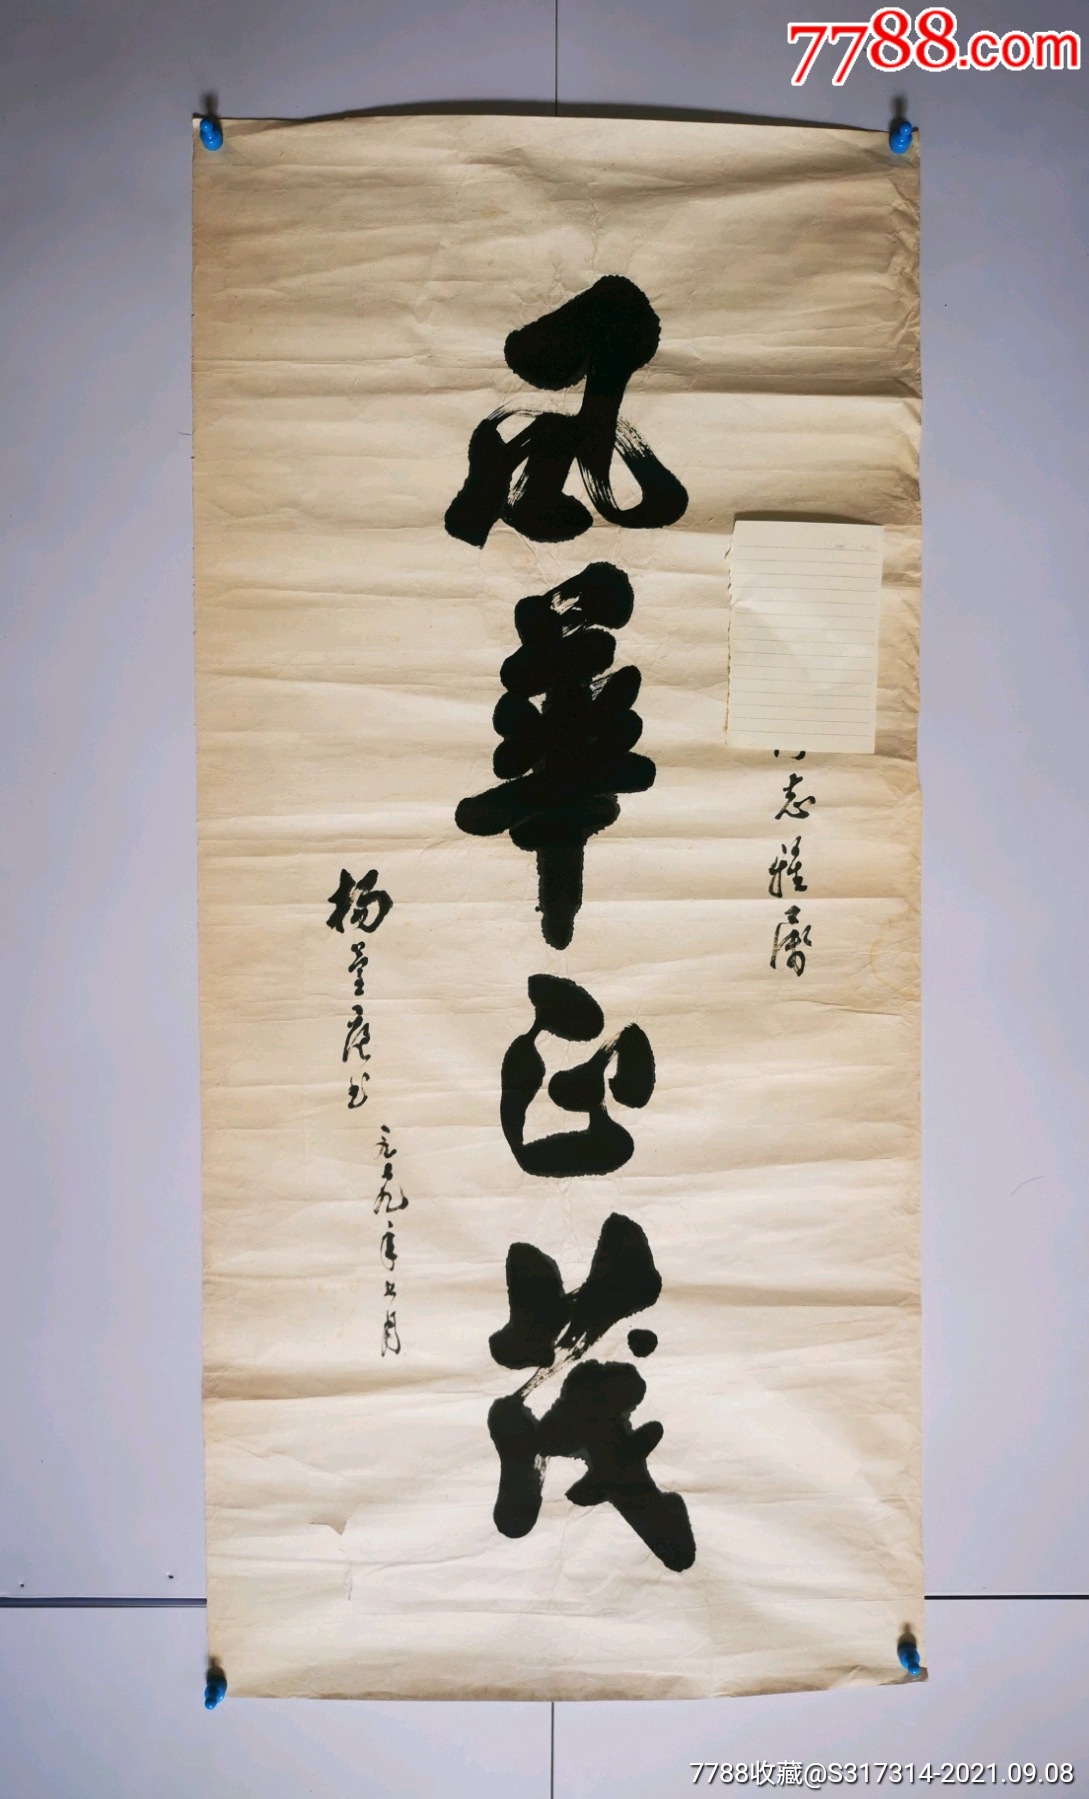 7788.com
风華正茂
同志雅属
杨萱庭书
一九七九年七月
7788收藏@S317314-2021.09.08